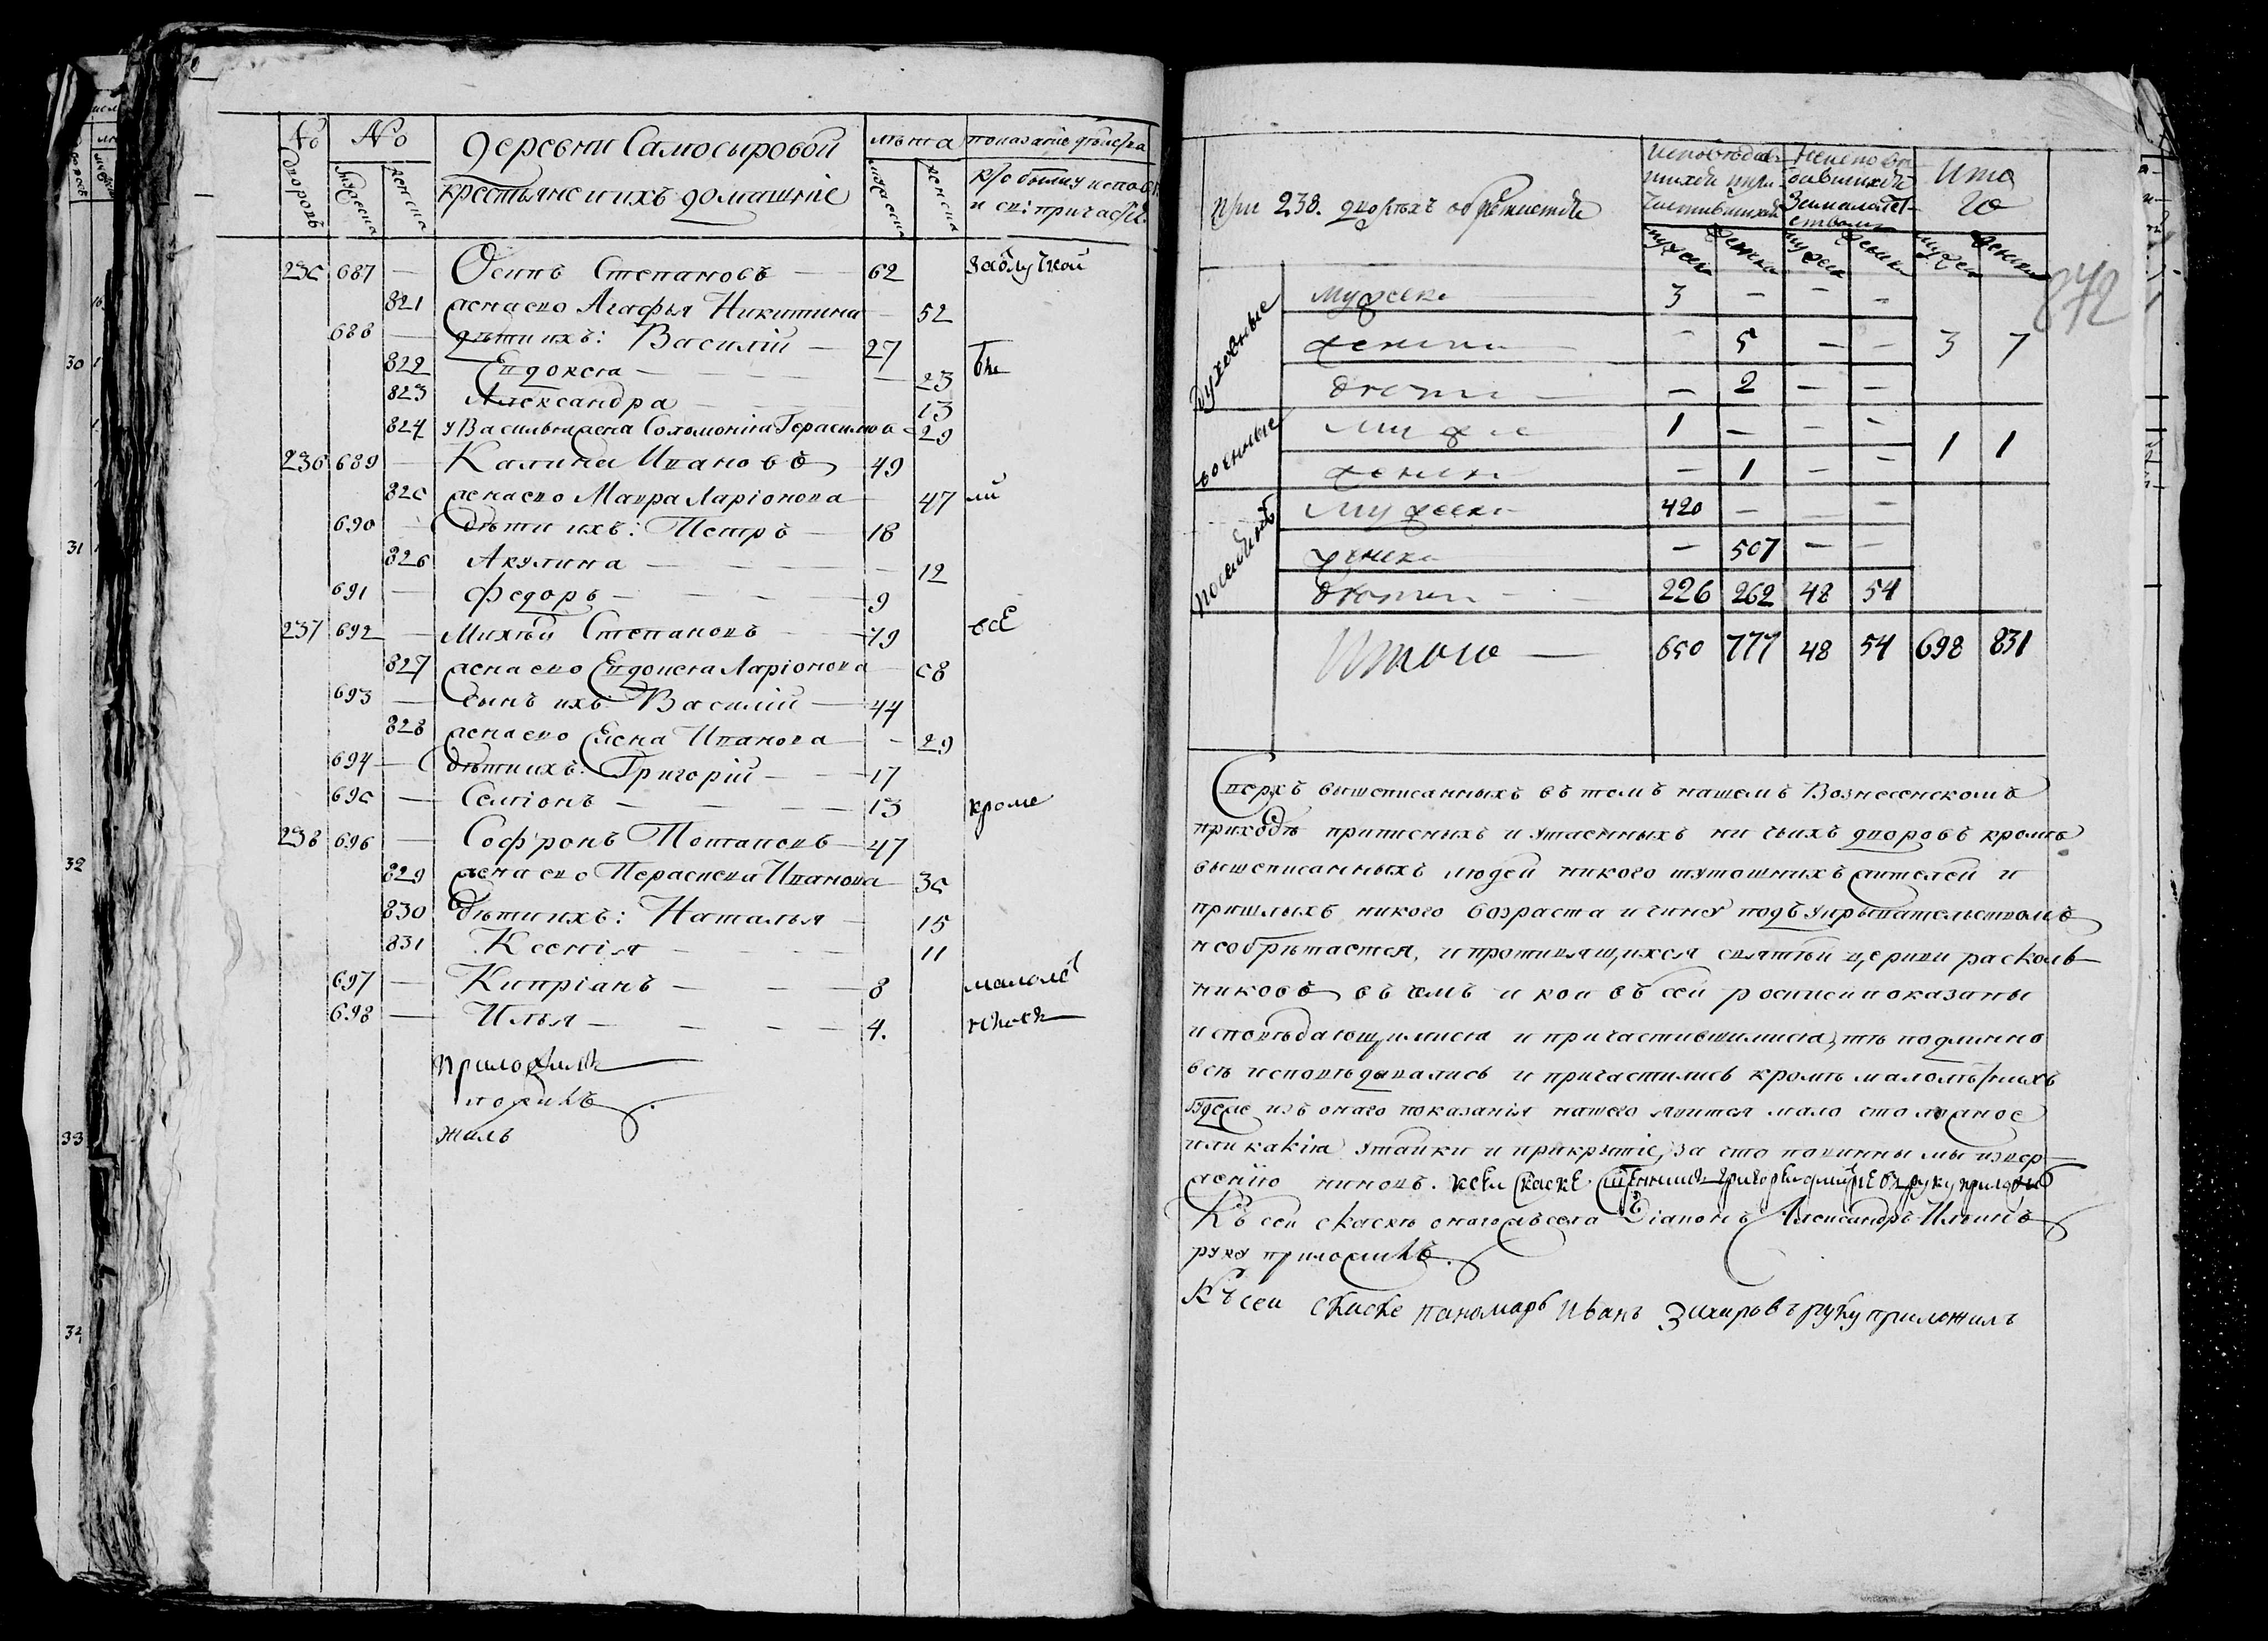 № дворовъ
№ мужеска женска
деревни Самосыровой
крестьяне и ихъ домашніе
лѣта мужеска женска
показаніе действа
кто былъ у испов
и св: причастія
235 687 — Осипъ Степановъ — 62
821 жена ево Агафья Никитина — 52
688 — дѣти ихъ: Василій — 27
822 Евдокея — 23
823 Александра — 13
824 у Василья жена Соломонида Герасимова 29
236 689 — Калина Ивановъ 49
825 жена ево Мавра Ларіонова — 47
690 — дѣти ихъ: Петръ — 18
826 Акулина — 12
691 — Федоръ — 9
237 692 — Михѣй Степановъ — 79
827 жена ево Евдокея Ларіонова — 58
693 — сынъ ихъ Василій — 44
828 жена ево Елена Иванова — 29
694 — дѣти ихъ: Григорій — 17
695 — Семіонъ — 13
238 696 — Софронъ Потаповъ — 47
829 жена ево Параскева Иванова 35
830 дѣти ихъ: Наталья — 15
831 Ксенія — 11
697 — Кипріанъ — 8
698 — Илья — 4.
бы
ли
все
кроме
малоле
приложилъ
ложилъ
жилъ
872
при 238. дворахъ обретается
исповѣдав
шихся и при
частившихся
неиспове
давшихся
за малолет
ствомъ
Ито
го
мужеска женска мужеска женска мужеска женска
духовные
мужеска 3 — — —
женска — 5 — — 3 7
дети — 2 — —
военные
мужеска 1 — — —
женска — 1 — — 1 1
мужеска 420 — — —
женска — 507 — —
дети 226 262 48 54
Итого — 650 777 48 54 698 831
Сверхъ вышеписанныхъ въ томъ нашемъ Вознесенскомъ
приходѣ приписныхъ и утаенныхъ ни чьихъ дворовъ кромѣ
вышеписанныхъ людей никого тутошнихъ жителей и
пришлыхъ никого возраста и чину подъ укрывательствомъ
необрѣтается, и противящихся святѣй церкви расколь-
никовъ въ чемъ и кои въ сей росписи показаны
исповѣдающимися и причастившимися, тѣ подлинно
всѣ исповѣдывались и причастились кромѣ малолѣтныхъ
буде же изъ онаго показанія нашего явится мало что ложное
или какія утайки и прикрытіе, за что повинны мы извер-
женію чиновъ. ксей скаске священникъ Григорей руку приложилъ
Къ сей скаскѣ онагожъ села Діаконъ Александръ Ильинъ
руку приложилъ.
Къ сей скаске панамарь Иванъ Захаровъ руку приложилъ